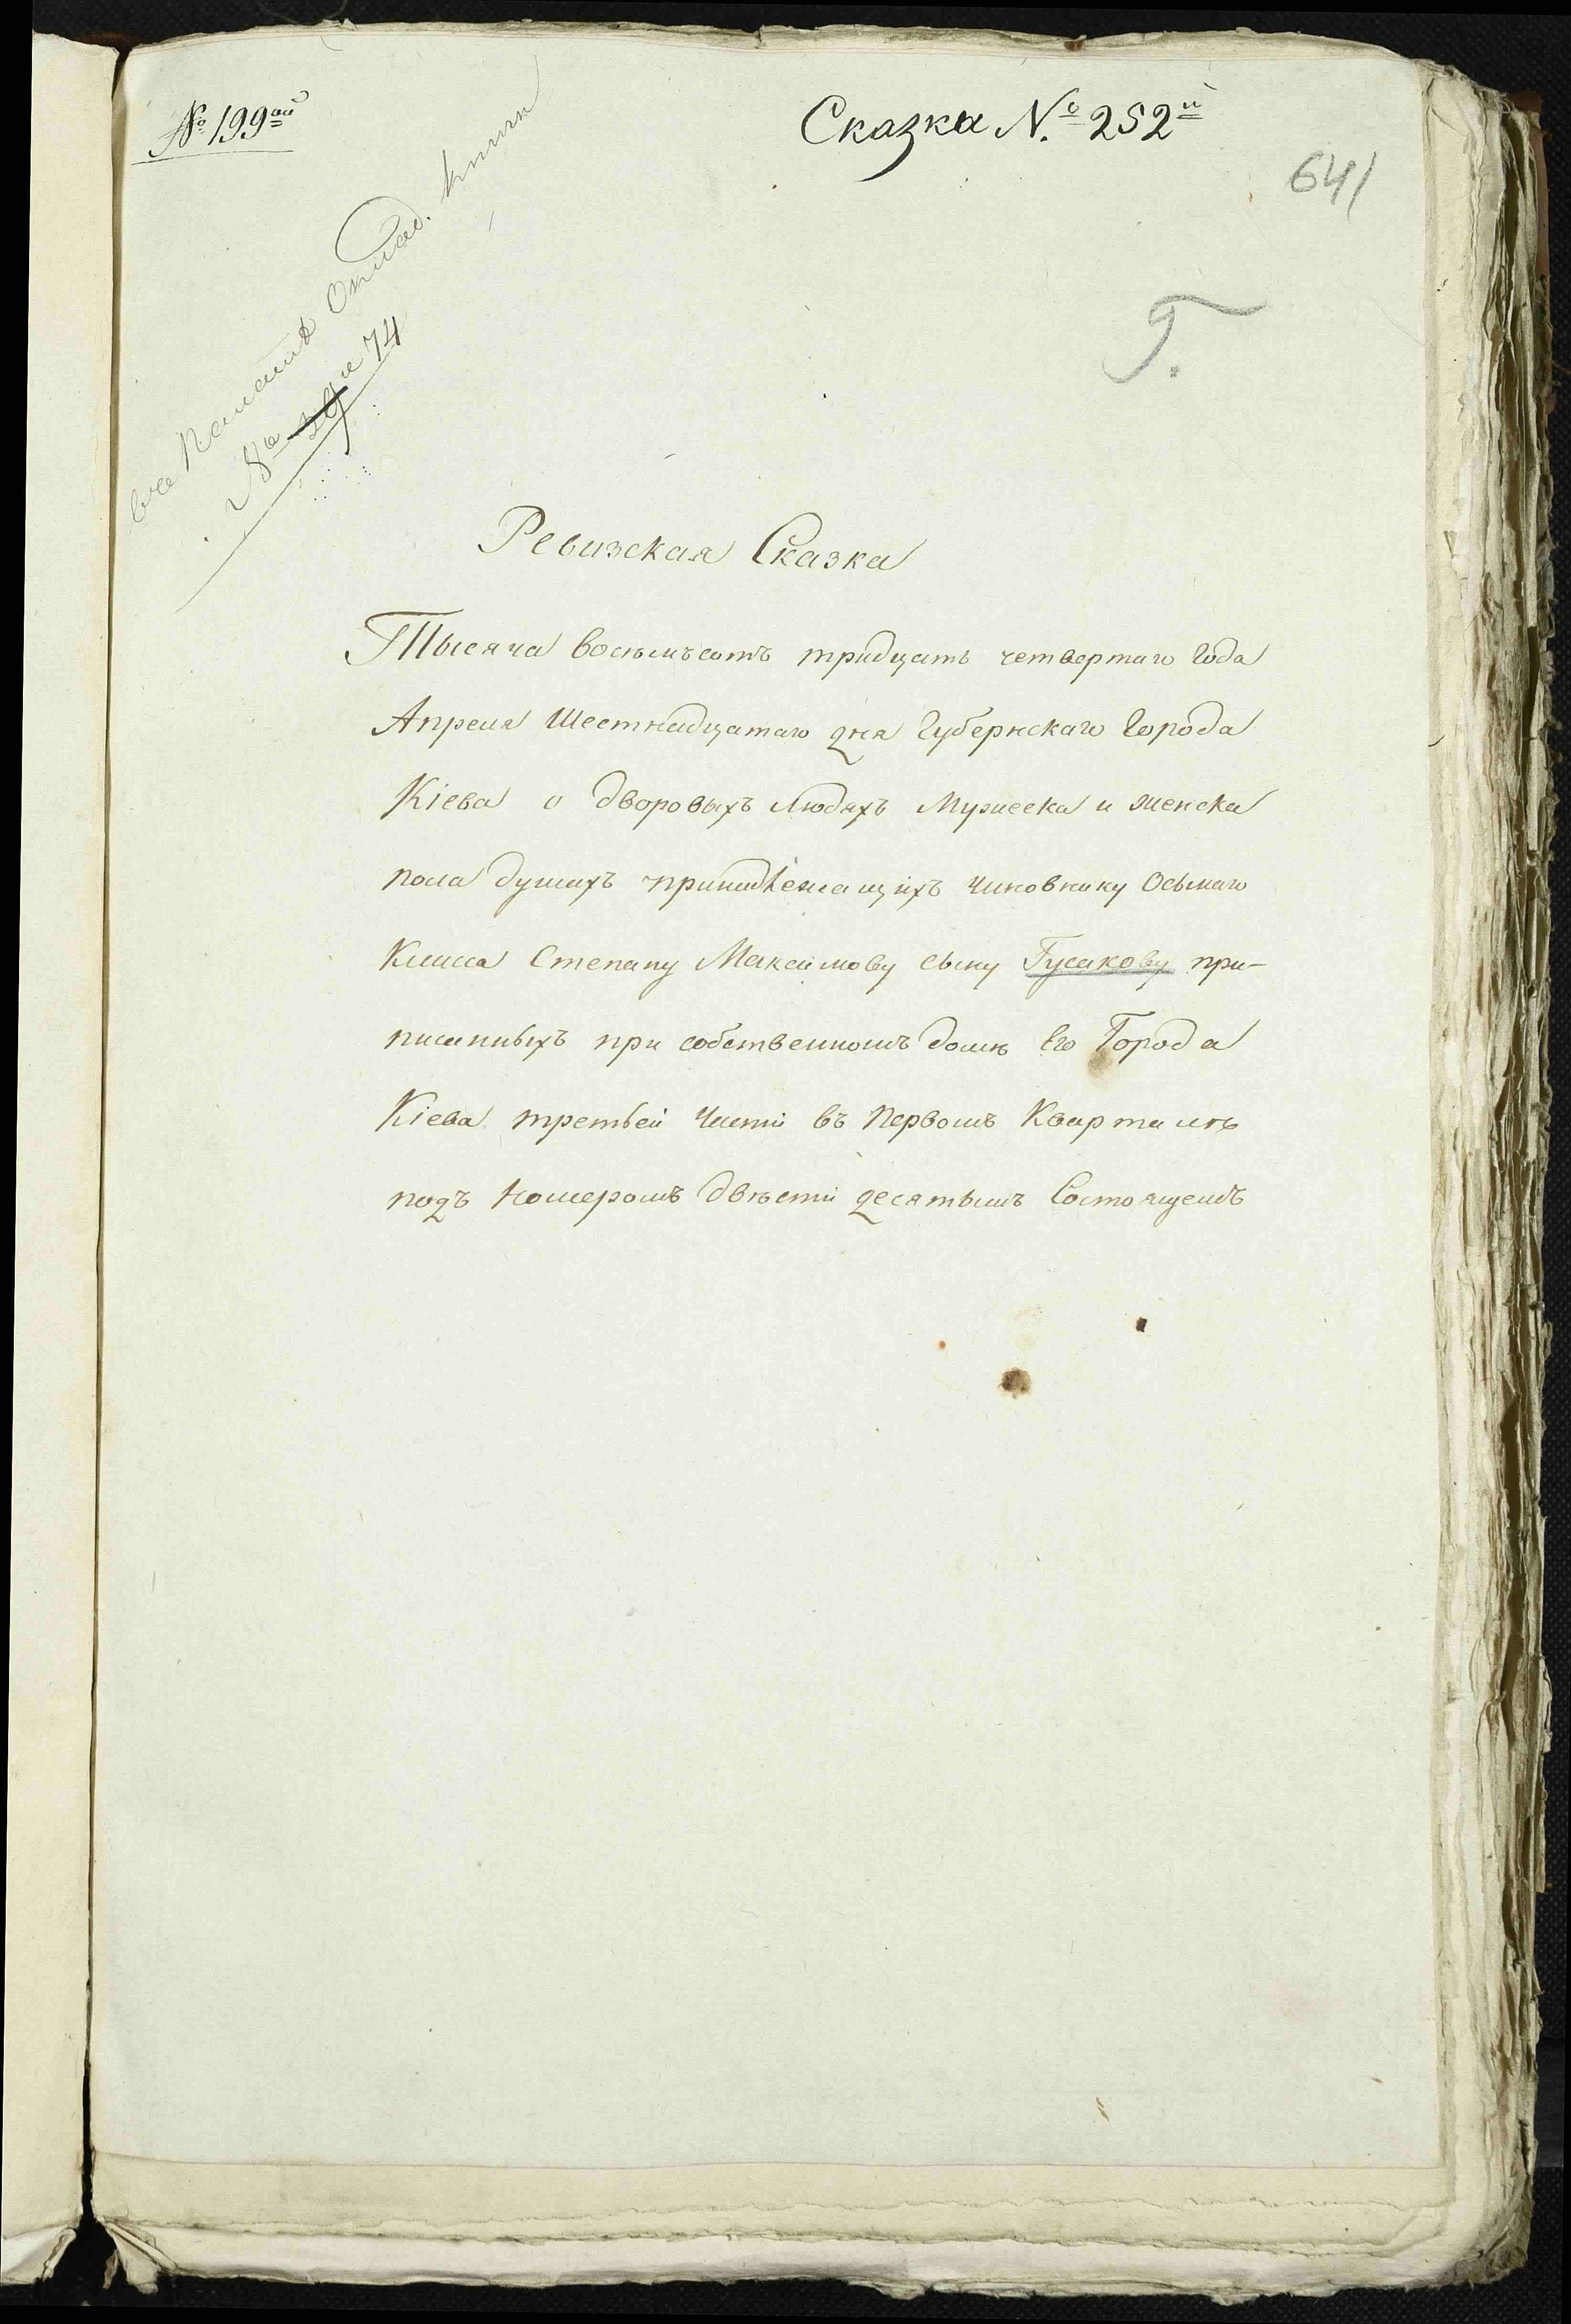 № 199ой
Сказка №. 252й
641
Г.
№ 39 и 74
Ревизская Сказка
Тысяча восемьсотъ тридцать четвертаго Года
Апреля Шестнадцатаго дня Губернскаго Города
Кіева о дворовыхъ людяхъ Мужеска и женска
пола душахъ принадлежащихъ чиновнику Осьмаго
Класса Степану Максимову сыну Гусакову при-
писанныхъ при собственномъ доме Его Города
Кіева третьей Части въ Первомъ Кварталѣ
подъ Номеромъ двѣсти десятымъ Состоящемъ